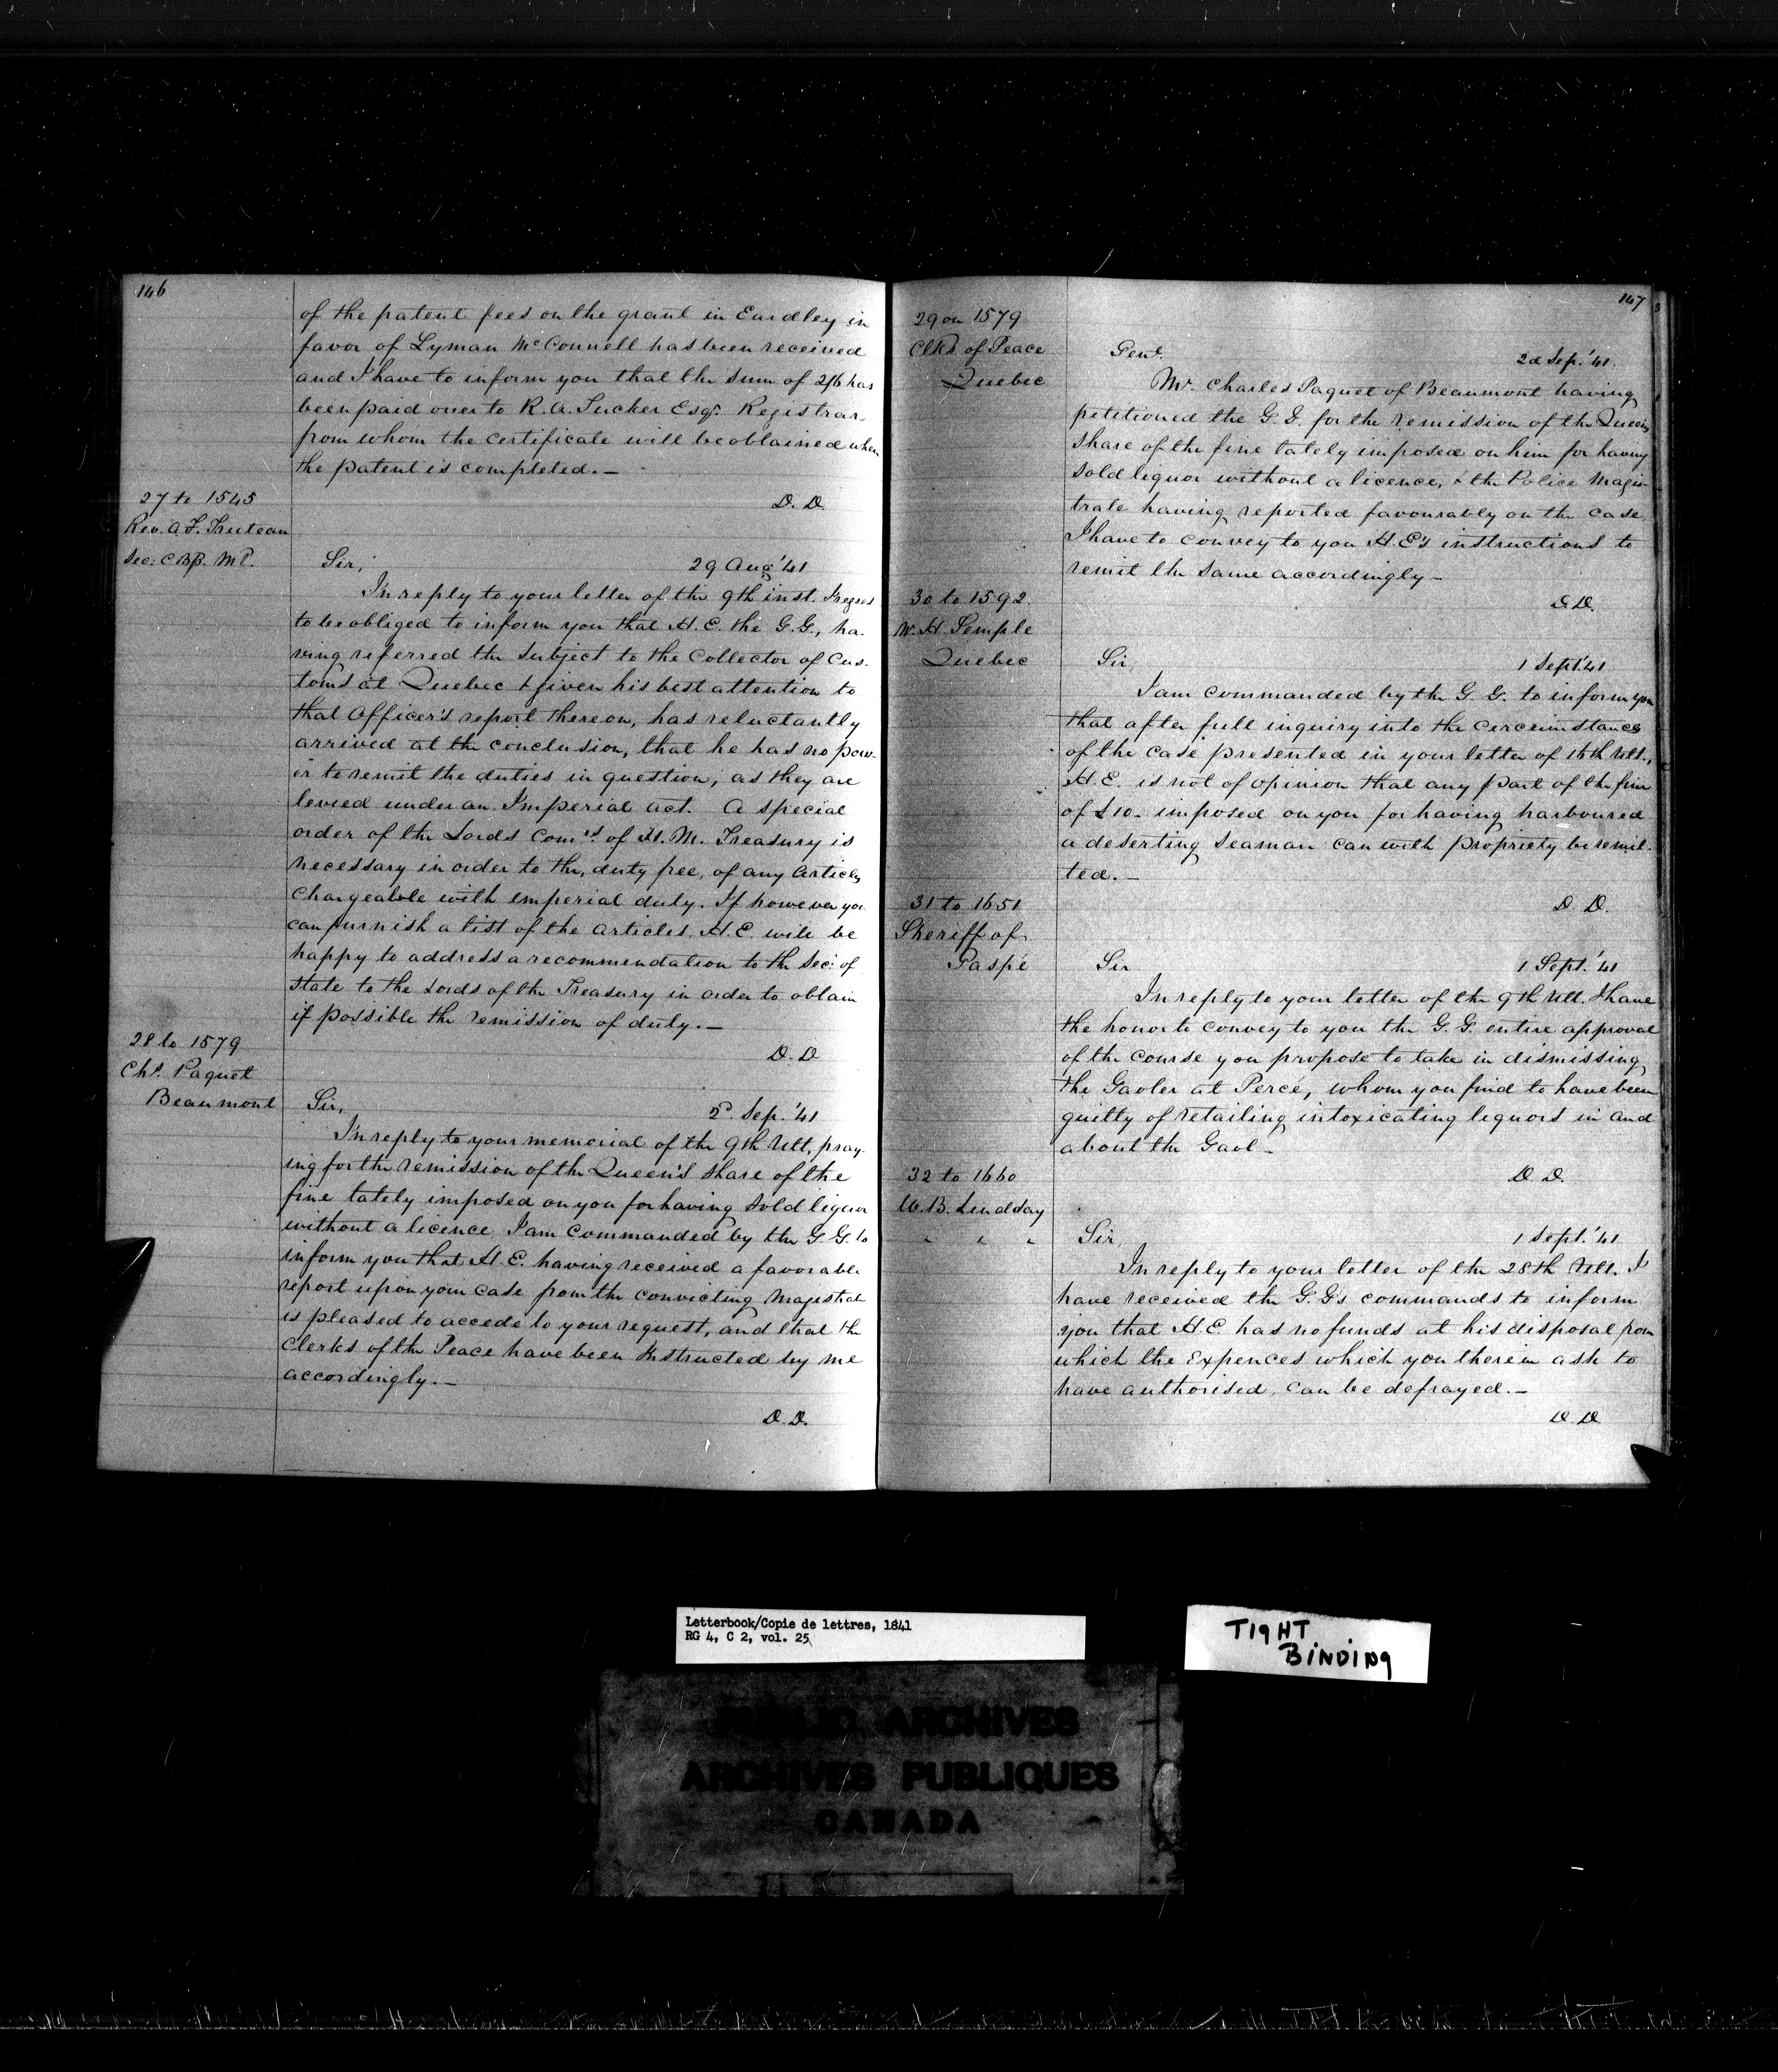 146
of the patent fees on the grant in Eardley in
favor of Lyman McConnell has been received
and I have to inform you that the sum of 2/6 has
been paid over to R. A. Tucker Esqr. Registrar
from whom the certificate will be obtained when
the patent is completed.—
D. D.
27 to 1545
Rev. A. F. Truteau
Sec:
Sir,
29 Aug '41
In reply to your letter of the 9th inst. I regret
to be obliged to inform you that H. E. the G. G., ha-
ving referred the subject to the Collector of Cus-
toms at Quebec & given his best attention to
that Officer's report thereon, has reluctantly
arrived at the conclusion, that he has no pow-
er to remit the duties in question, as they are
levied under an Imperial act. A special
order of the Lords Comrs. of H. M. Treasury is
necessary in order to the, duty free, of any articles
chargeable with imperial duty. If however you
can furnish a list of the articles, H. E. will be
happy to address a recommendation to the Sec: of
State to the Lords of the Treasury in order to obtain
if possible the remission of duty.—
D. D
28 to 1579
Chs. Paquet
Beaumont
Sir,
2d. Sep. '41
In reply to your memorial of the 9th Ult, pray-
ing for the remission of the Queen's share of the
fine lately imposed on you for having sold liquor
without a licence I am commanded by the G. G. to
inform you that H. E. having received a favorable
report upon your case from the convicting Magistrate
is pleased to accede to your request, and that the
Clerks of the Peace have been instructed by me
accordingly.—
D. D.
147
29 on 1579
Clks of Peace
Quebec
Gent.
2d Sep. '41.
Mr. Charles Paquet of Beaumont having
petitioned the G. G. for the remission of the Queen's
share of the fine lately imposed on him for having
sold liquor without a licence, & the Police Magis-
trate having reported favourably on the case,
I have to convey to you H. E's instructions to
remit the same accordingly—
D. D.
30 to 1592.
W. H. Semple
Quebec
Sir,
1 Sept. '41
I am commanded by the G. G. to inform you
that after full inquiry into the circumstances
of the case presented in your letter of 16th Ult.,
H. E. is not of opinion that any part of the fine
of £10- imposed on you for having harboured
a deserting seaman can with propriety be remit-
ted.—
D. D.
31 to 1651
Sheriff of
Gaspé
Sir
1 Sept. '41
In reply to your letter of the 9th Ult. I have
the honor to convey to you the G. G. entire approval
of the course you propose to take in dismissing
the Gaoler at Percé, whom you find to have been
guilty of retailing intoxicating liquors in and
about the Gaol—
D. D.
32 to 1660
W. B. Lindsay
" " "
Sir,
1 Sept. '41
In reply to your letter of the 28th Ult. I
have received the G. G's commands to inform
you that H. E. has no funds at his disposal from
which the expences which you therein ask to
have authorised, can be defrayed.—
D. D.
Letterbook/Copie de lettres, 1841
RG 4, C 2, vol. 25
TIGHT
BINDING
PUBLIC ARCHIVES
ARCHIVES PUBLIQUES
CANADA